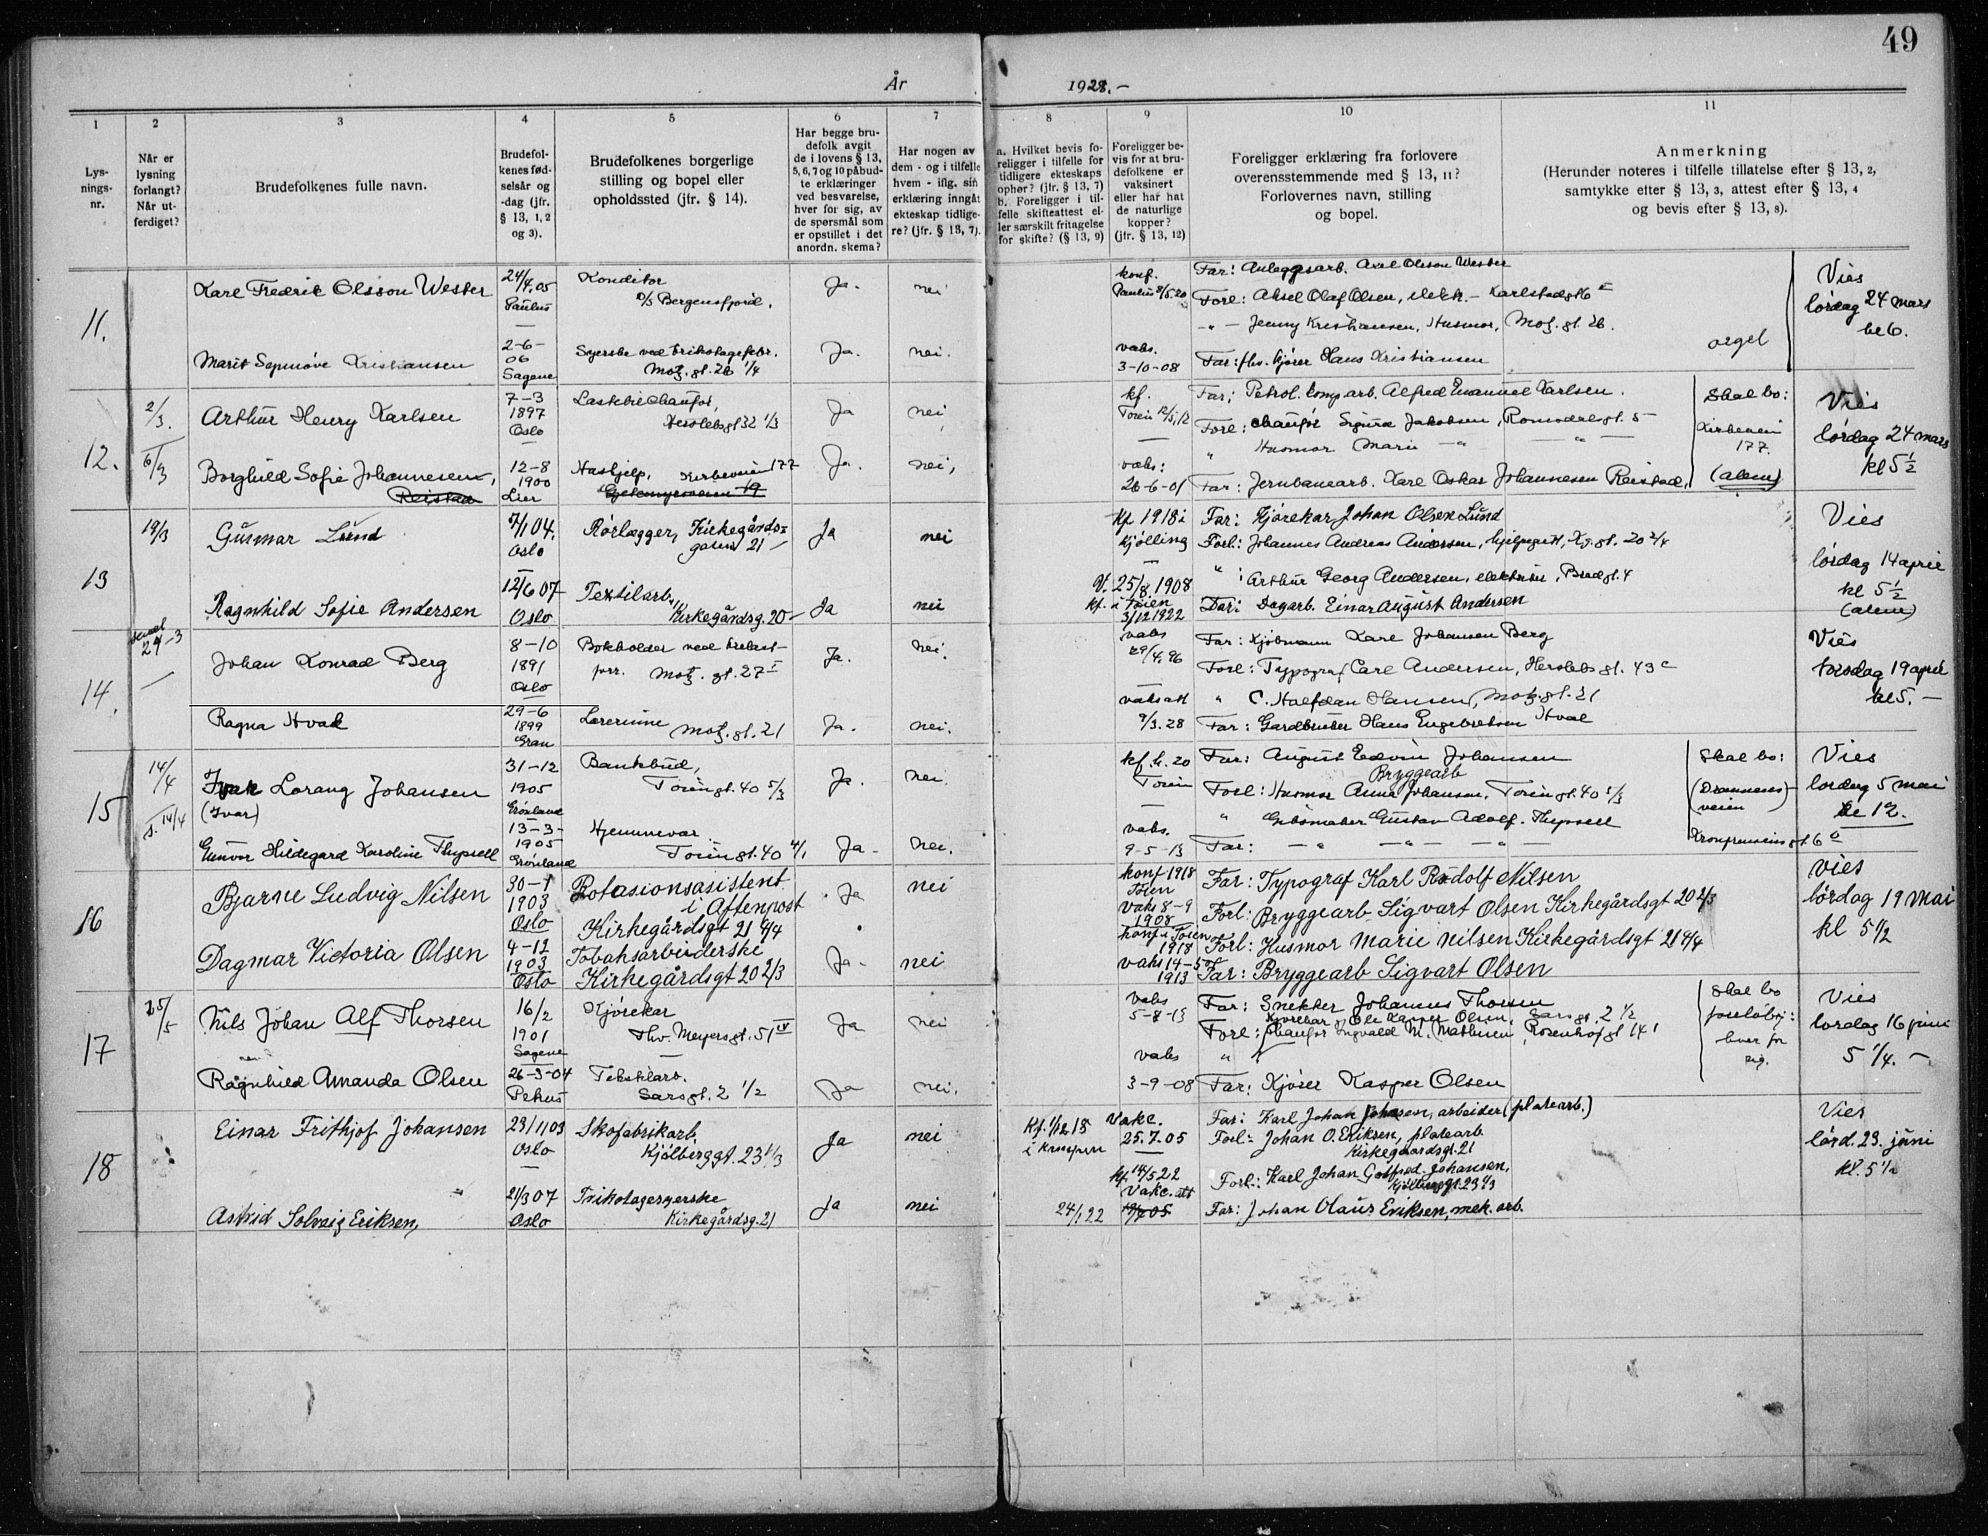 49
År 1928.-
1 2 3 4 5 6 7 8 9 10 11
Lys-
nings-
nr.
Når er
lysning
forlangt?
Når ut-
ferdiget?
Brudefolkenes fulle navn.
Brudefol-
kenes fød-
selsår og
-dag (jfr.
§ 13, 1, 2
og 3).
Brudefolkenes borgerlige
stilling og bopel eller
opholdssted (jfr. § 14).
Har begge bru-
defolk avgit
de i lovens § 13,
5, 6, 7 og 10 påbud-
te erklæringer
ved besvarelse,
hver for sig, av
de spørsmål som
er opstillet i det
anordn. skema?
Har nogen av
dem - og i tilfelle
hvem - iflg. sin
erklæring inngåt
ekteskap tidlige-
re? (jfr. § 13, 7).
a. Hvilket bevis fo-
religger i tilfelle for
tidligere ekteskaps
ophør? (jfr. § 13, 7)
b. Foreligger i til-
felle skifteattest el-
ler særskilt fritagelse
for skifte? (§ 13, 9)
Foreligger be-
vis for at bru-
defolkene er
vaksinert
eller har hat
de naturlige
kopper?
(jfr. § 13, 12)
Foreligger erklæring fra forlovere
overensstemmende med § 13, 11?
Forlovernes navn, stilling
og bopel.
Anmerkning
(Herunder noteres i tilfelle tillatelse efter § 13, 2,
samtykke efter § 13, 3, attest efter § 13, 4
og bevis efter § 13, 8).
11.
Karl Fredrik Olsson Wester
24/4.05
Paulus
Konditor
D/S Bergensfjord.
Ja. nei
konf.
Paulus 8/5.20
Far: Anleggsarb. Axel Olsson Wester
Forl: Aksel Olaf Olsen, elektr. - Karlstadgt 6 II
-"- Jenny Kristiansen, Husmor, Motz.gt. 26.
orgel
Vies
lørdag 24 mars
kl 6.
Marit Synnøve Kristiansen
2-6-
06
Sagene
Syerske ved trikotagefabr.
Motz.gt. 26 1/4
Ja. nei.
vaks.
3-10-08
Far: fhv. kjører Hans Kristiansen
12.
2/3.
6/3
Arthur Henry Karlsen
7-3
1897
Oslo
Lastebilchaufør,
Herslebsgt 32 1/3
Ja nei,
kf.
Tøien 12/5,12
Far: Petrol. komp. arb. Alfred Emanuel Karlsen.
Forl: chaufør Sigurd Jakobsen, Romsdalsgt. 5
" Husmor Marie -"- -"-
Skal bo:
Kirkeveien
177.
(alene)
Vies
lørdag 24 mars
kl 5 1/2
Borghild Sofie Johannesen,
Reistad
12-8
1900
Lier
Hushjelp, Kirkeveien 177
Ja. nei,
vaks:
26-6-01
Far: Jernbanearb. Karl Oskar Johannesen Reistad.
13
19/3
Gunnar Lund
7/1 04.
Oslo
Rørlægger, Kirkegårds-
gaten 21 -
Ja nei
Kf 1918 i
Kjølling
Far: Kjørekar Johan Olsen Lund
Forl: Johannes Andreas Andersen, hjelpegutt, Kg.gt. 20 2/4
" : Arthur Georg Andersen, elektriker, Bredgt. 4
Vies
lørdag 14 april
kl 5 1/2
(alene)
Ragnhild Sofie Andersen
12/6 07
Oslo
Textilarb.
Kirkegårdsg. 20 -
Ja nei
25/8.1908
kf. i Tøien
3/12 1922
Far: Dagarb. Einar August Andersen
14.
24-3
Johan Konrad Berg
8-10
1891
Oslo
Bokholder ved
Motz.gt. 27 I
Ja. nei.
vaks
29/4.96
Far: Kjøbmann Karl Johansen Berg
Forl: Typograf Carl Andersen, Herslebsgt. 43 c
" C. Halfdan Hansen, Motz.gt. 21
Vies
torsdag 19 april
kl 5. -
Ragna Hval
29-6
1899
Gran
Lærerinne Motz.gt. 21
Ja. nei.
vaksatt
9/3.28
Far: Gardbruker Hans Engebretsen Hval
15
14/4
s. 14/4
Ivar Lorang Johansen
(Ivar)
31-12
1905
Grønland
Bankbud,
Tøiengt. 40 5/3
Ja. nei.
kf. h. 20
Tøien
Far: August Edvin Johansen
Bryggearb
Forl: Husmor Anna Johansen, Tøiengt. 40 5/3
" Gibsmaker Gustav Adolf. Thysell
Skal bo:
(Drammens-
veien
Kronprinsensgt. 6 a
Vies
lørdag 5 mai
kl 12.
Gunvor Hildegard Karoline Thysell
13-3-
1905
Grønland
Hjemmevær.
Tøiengt. 40 4/1
Ja. nei.
vaks.
9-5-13
Far: -"- -"- -"-
16
Bjarne Ludvig Nilsen
30-1
1903
Oslo
Rotasionsasistent
i Aftenpost
Kirkegårdsgt 21 4/4
Ja nei
konf 1918
Tøien
vaks 8-9
1908
Far: Typograf Karl Rudolf Nilsen
Forl: Bryggearb Sigvart Olsen Kirkegårdsgt 20 2/3
Vies
lørdag 19 Mai
kl 5 1/2
Dagmar Victoria Olsen
4-12
1903
Oslo
Tobaksarbeiderske
Kirkegårdsgt 20 2/3
Ja. nei
konf i Tøien
1918
vaks 14-5
1913
Forl: Husmor Marie Nilsen Kirkegårdsgt 21 4/4
Far: Bryggearb Sigvart Olsen
17
25/5
Nils Johan Alf Thorsen
16/2
1901
Sagene
Kjørekar
Thv. Meyersgt. 51 IV
Ja nei
vaks
5-8-13
Far: Snekker Johannes Thorsen
Kjørekar Ole Kasper Olsen, Sarsgt. 2 1/2
Forl: chaufør Ingvald M. Mathisen, Rosenhofgt 14 I
"
Skal bo
foreløbig:
hver for
sig.
Vies
lørdag 16 juni
5 1/4. -
Ragnhild Amanda Olsen
26-3-04
Petrus
Tekstilarb.
Sarsgt. 2 1/2
Ja nei.
vaks
3-9-08
Far: Kjører Kasper Olsen
18
Einar Frithjof Johansen
23/11 03
Oslo
Skofabrikarb.
Kjølberggt. 23 4/3
Ja nei
Kf. 1/12 18
i Kampen
Vakc.
25.7.05
Far: Karl Johan Johansen, arbeider (platearb.)
Forl: Johan O. Eriksen, platearb.
Kirkegaardsgt. 21
Forl: Karl Johan Gotfred Johansen,
Kjølberggt. 23 4/3
Vies
lørd. 23. juni
kl. 5 1/2
Astrid Solveig Eriksen,
21/3 07
Oslo
Trikotagesyerske
Kirkegårdsg. 21
Ja nei
kf. 14/5 22
Vakc. att
24/1 22
Far: Johan Olaus Eriksen, mek. arb.